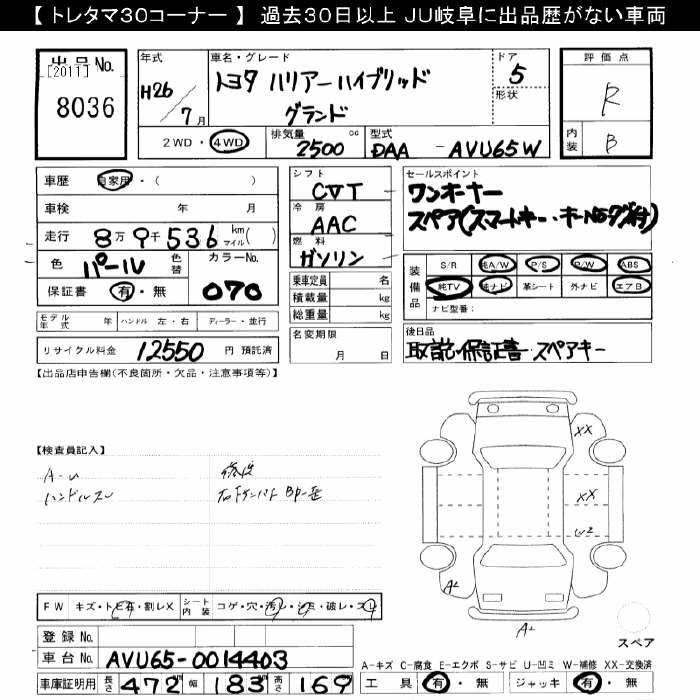 【 トレタマ30コーナー 】 過去30日以上 JU岐阜に出品歴がない車両
出品No. [2011]
8036
年式 H26/7月
車名・グレード
トヨタ ハリアーハイブリッド
グランド
ドア 5
形状
2WD・4WD 排気量 2500 cc 型式 DAA - AVU65W
評価点
R
内装 B
車歴 自家用・( )
車検 年 月
走行 8万9千536 km マイル( )
色 パール 色替 カラーNo.
保証書 有・無 070
モデル年式 年 ハンドル 左・右 ディーラー・並行
リサイクル料金 12550 円 預託済
シフト CVT
冷房 AAC
燃料 ガソリン
乗車定員 名
積載量 kg
総重量 kg
名変期限
月 日
セールスポイント
ワンオーナー
スペア(スマートキー、キーNoタグ付)
装備品 S/R 純A/W P/S P/W ABS
純TV 純ナビ 革シート 外ナビ エアB
ナビ型番:
後日品
取説・保証書・スペアキー
【出品店申告欄(不良箇所・欠品・注意事項等)】
【検査員記入】
A-U
ハンドルスレ
修復
XX
XX
W2
A2
A2
FW キズ・トビ石・割レX シート内装 コゲ・穴・汚レ・シミ・破レ・スレ
登録No.
車台No. AVU65-0014403
車庫証明用 長さ 472 幅 183 高さ 169
スペア
A-キズ C-腐食 E-エクボ S-サビ U-凹ミ W-補修 XX-交換済
工具 有・無 ジャッキ 有・無